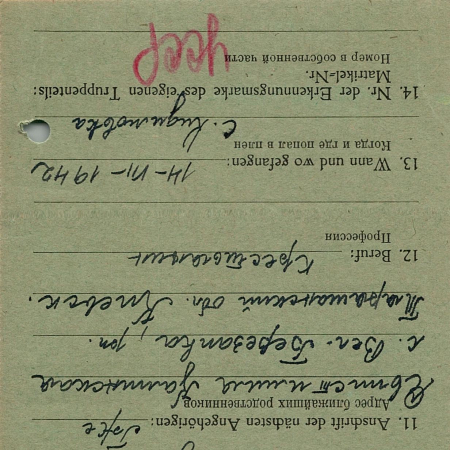 11. Anschrift der nächsten Angehörigen:
Адрес ближайших родственников
с. Вел.-Березанка, рн.
Таращанский обл. Киевск.
12. Beruf: Крестьянин
Профессия
13. Wann und wo gefangen: 14-VII-1942
Когда и где попал в плен
с.
14. Nr. der Erkennungsmarke des eigenen Truppenteils:
Matrikel-Nr.
Номер в собственной части
усср